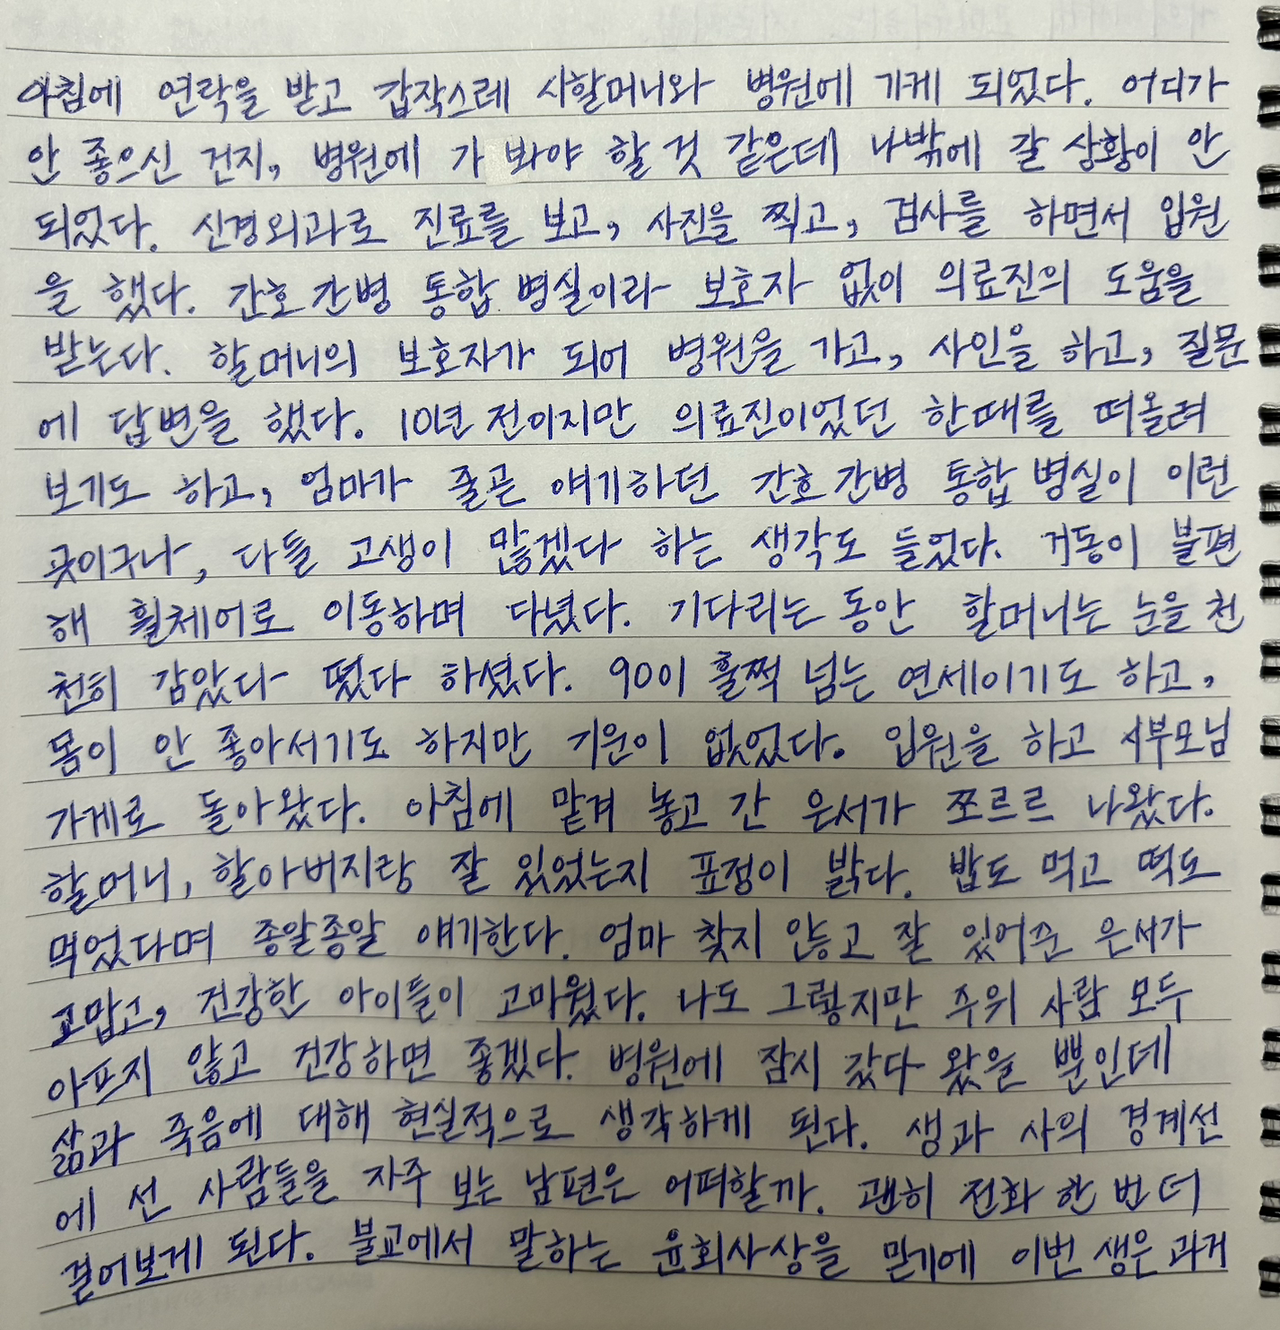 아침에 연락을 받고 갑작스레 시할머니와 병원에 가게 되었다. 어디가
안 좋으신 건지, 병원에 가 봐야 할 것 같은데 나밖에 갈 상황이 안
되었다. 신경외과로 진료를 보고, 사진을 찍고, 검사를 하면서 입원
을 했다. 간호 간병 통합 병실이라 보호자 없이 의료진의 도움을
받는다. 할머니의 보호자가 되어 병원을 가고, 사인을 하고, 질문
에 답변을 했다. 10년 전이지만 의료진이었던 한때를 떠올려
보기도 하고, 엄마가 줄곧 얘기하던 간호 간병 통합 병실이 이런
곳이구나, 다들 고생이 많겠다 하는 생각도 들었다. 거동이 불편
해 휠체어로 이동하며 다녔다. 기다리는 동안 할머니는 눈을 천
천히 감았다 떴다 하셨다. 90이 훌쩍 넘는 연세이기도 하고,
몸이 안 좋아서기도 하지만 기운이 없었다. 입원을 하고 시부모님
가게로 돌아왔다. 아침에 맡겨 놓고 간 은서가 쪼르르 나왔다.
할머니, 할아버지랑 잘 있었는지 표정이 밝다. 밥도 먹고 떡도
먹었다며 종알종알 얘기한다. 엄마 찾지 않고 잘 있어준 은서가
고맙고, 건강한 아이들이 고마웠다. 나도 그렇지만 주위 사람 모두
아프지 않고 건강하면 좋겠다. 병원에 잠시 갔다 왔을 뿐인데
삶과 죽음에 대해 현실적으로 생각하게 된다. 생과 사의 경계선
에 선 사람들을 자주 보는 남편은 어떠할까. 괜히 전화 한 번 더
걸어보게 된다. 불교에서 말하는 윤회사상을 믿기에 이번 생은 과거